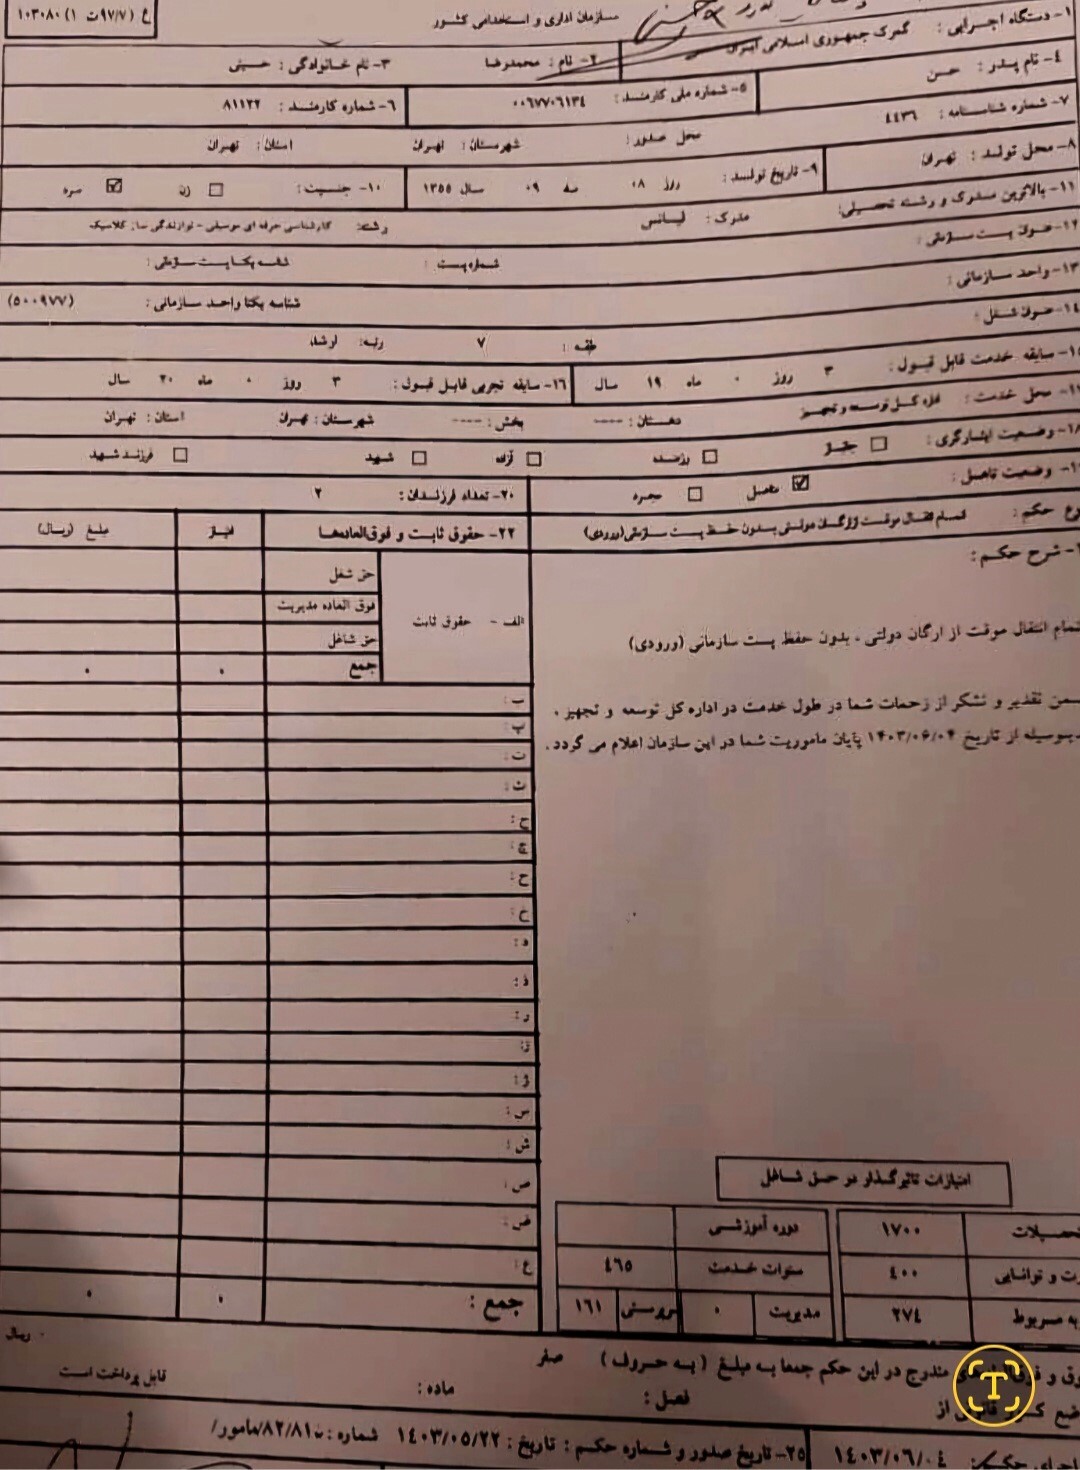 سازمان اداری و استخدامی کشور
ع (۹۷/۷ت ۱) ۱۰۳۰۸۰
۱- دستگاه اجرایی : گمرک جمهوری اسلامی ایران
۲- نام : محمدرضا
۳- نام خانوادگی : حسینی
۴- نام پدر : حسن
۵- شماره ملی کارمند : ۰۰۶۷۷۰۶۱۳۴
۶- شماره کارمند : ۸۱۱۲۲
۷- شماره شناسنامه : ٤٤٣٦
محل صدور : شهرستان : تهران استان : تهران
۸- محل تولد : تهران
۹- تاریخ تولد : روز ۰۸ مه ۰۹ سال ۱۳۵۵
۱۰- جنسیت : زن مرد
۱۱- بالاترین مدرک و رشته تحصیلی : مدرک : لیسانس رشته : کارشناسی حرفه ای موسیقی - نوازندگی ساز کلاسیک
۱۲- عنوان پست سازمانی : شماره پست : شناسه یکتا پست سازمانی :
۱۳- واحد سازمانی : شناسه یکتا واحد سازمانی : (۵۰۰۹۷۷)
۱۴- عنوان شغل :
طبقه : ۷ رتبه : ارشد
سابقه خدمت قابل قبول : ۳ روز ۰ ماه ۱۹ سال
۱۶- سابقه تجربی قابل قبول : ۳ روز ۰ ماه ۲۰ سال
محل خدمت : اداره کل توسعه و تجهیز دهستان : ---- بخش : ---- شهرستان : تهران استان : تهران
۱۸- وضعیت ایثارگری : جانباز رزمنده آزاده شهید فرزند شهید
وضعیت تاهل : متاهل مجرد
۲۰- تعداد فرزندان : ۲
نوع حکم : اتمام انتقال موقت از ارگان دولتی بدون حفظ پست سازمانی (ورودی)
۲۲- حقوق ثابت و فوق‌العاده‌ها امتیاز مبلغ (ریال)
شرح حکم :
الف - حقوق ثابت
حق شغل
فوق العاده مدیریت
حق شاغل
جمع ۰ ۰
اتمام انتقال موقت از ارگان دولتی - بدون حفظ پست سازمانی (ورودی)
ضمن تقدیر و تشکر از زحمات شما در طول خدمت در اداره کل توسعه و تجهیز ،
بدینوسیله از تاریخ ۱۴۰۳/۰۶/۰۴ پایان ماموریت شما در این سازمان اعلام می گردد .
ب :
پ :
ت :
ث :
ج :
چ :
ح :
خ :
د :
ذ :
ر :
ز :
ژ :
س :
ش :
ص :
ض :
ع :
جمع : ۰ ۰
امتیازات تاثیرگذار در حق شاغل
تحصیلات ۱۷۰۰ دوره آموزشی
ت و توانایی ٤٠٠ سنوات خدمت ٤٦٥
به مربوط ۲۷٤ مدیریت ۰ سرپرستی ۱۶۱
وق و فوق‌العاده‌های مندرج در این حکم جمعا به مبلغ ( به حروف ) صفر ۰ ریال
وضع کسور قانونی از فصل : ماده : قابل پرداخت است
اجرای حکم : ۱۴۰۳/۰۶/۰٤
۲۵- تاریخ صدور و شماره حکم : تاریخ : ۱۴۰۳/۰۵/۲۲ شماره : ۸۲/۸۱/مامور/